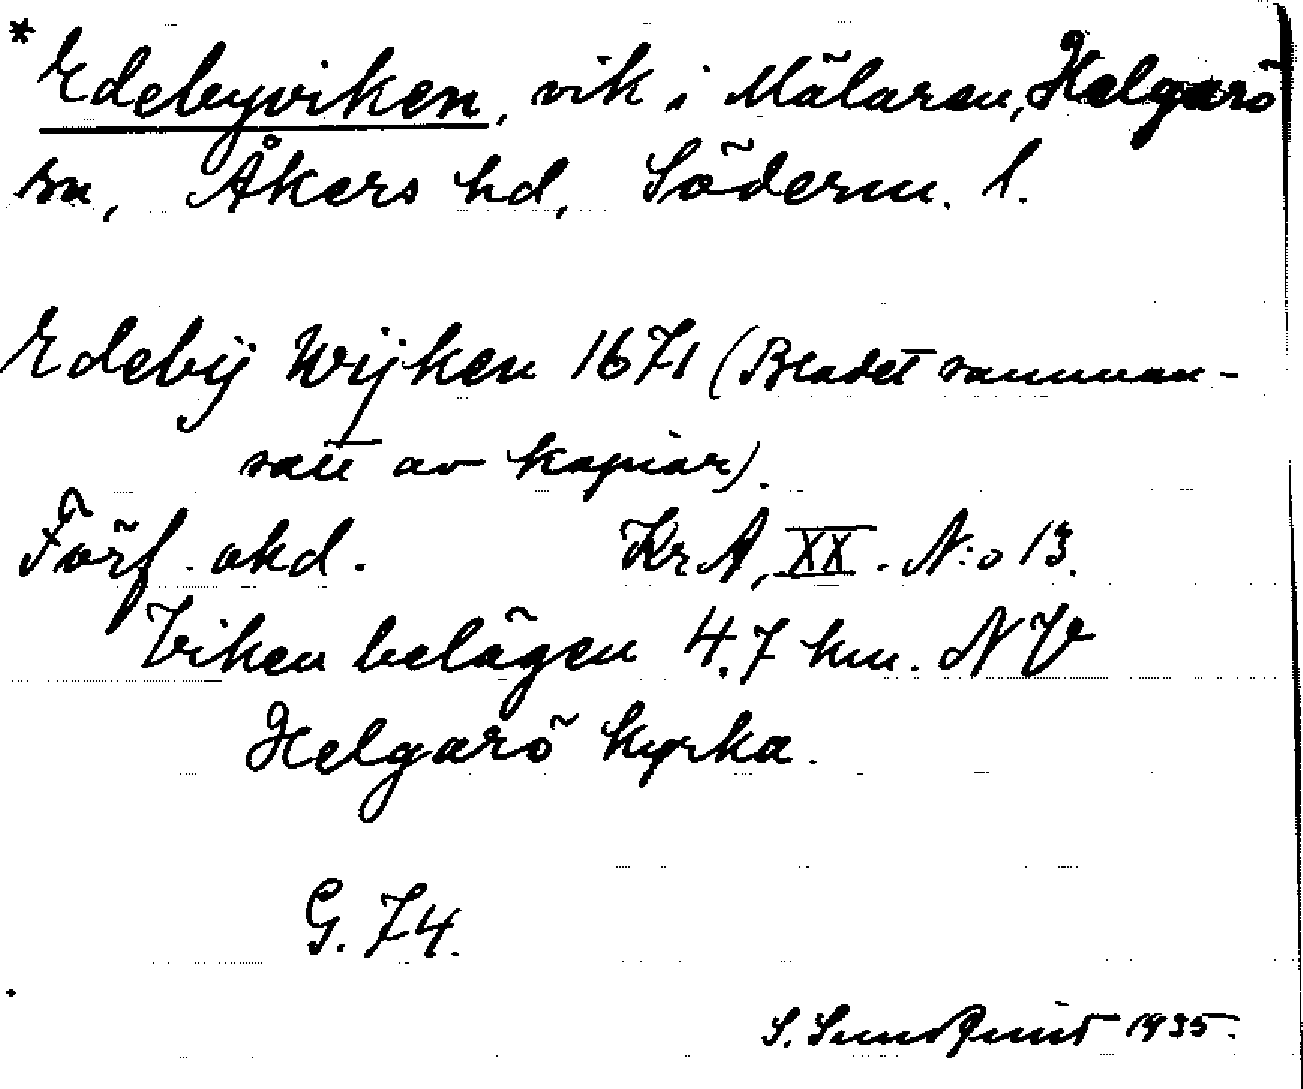 * Edebyviken, vik i Mälaren, Helgarö
sn, Åkers hd, Söderm. l.
Edebÿ Wijken 1671 (Bladet samman-
satt av kopior).
Förf. okd. KrA, XX. N:o 13.
Viken belägen 4,7 km. NV
Helgarö kyrka.
G. 74.
S. Sundquist 1935.